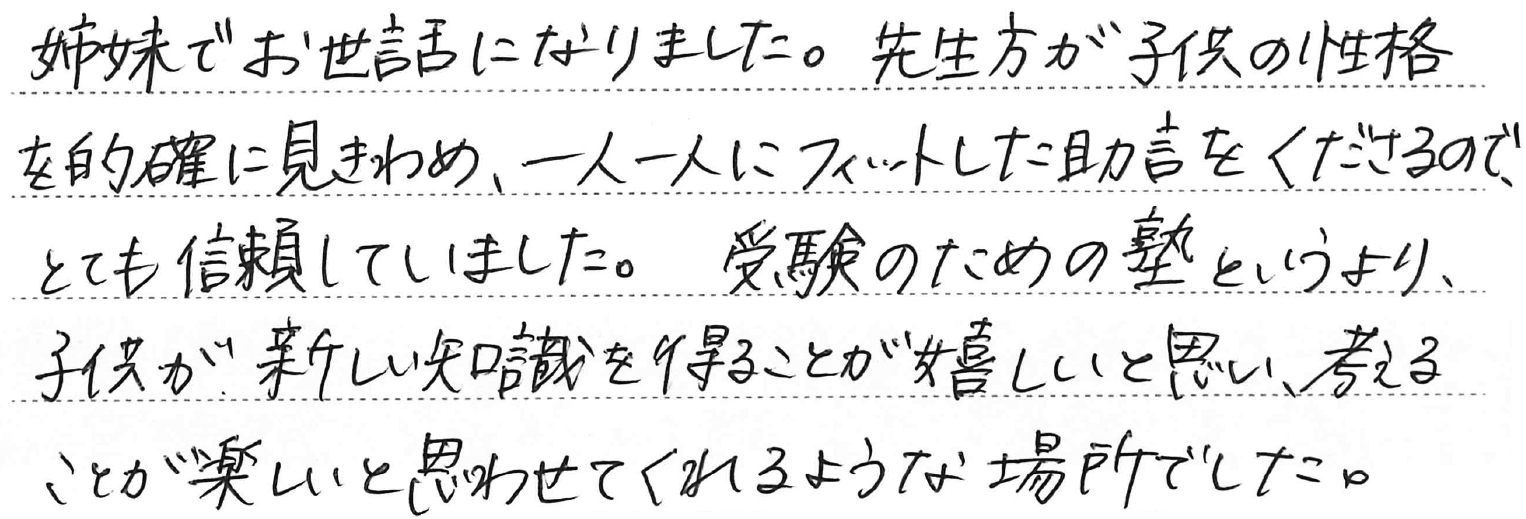 姉妹でお世話になりました。先生方が子供の性格
を的確に見きわめ、一人一人にフィットした助言をくださるので、
とても信頼していました。 受験のための塾というより、
子供が新しい知識を得ることが嬉しいと思い、考える
ことが楽しいと思わせてくれるような場所でした。